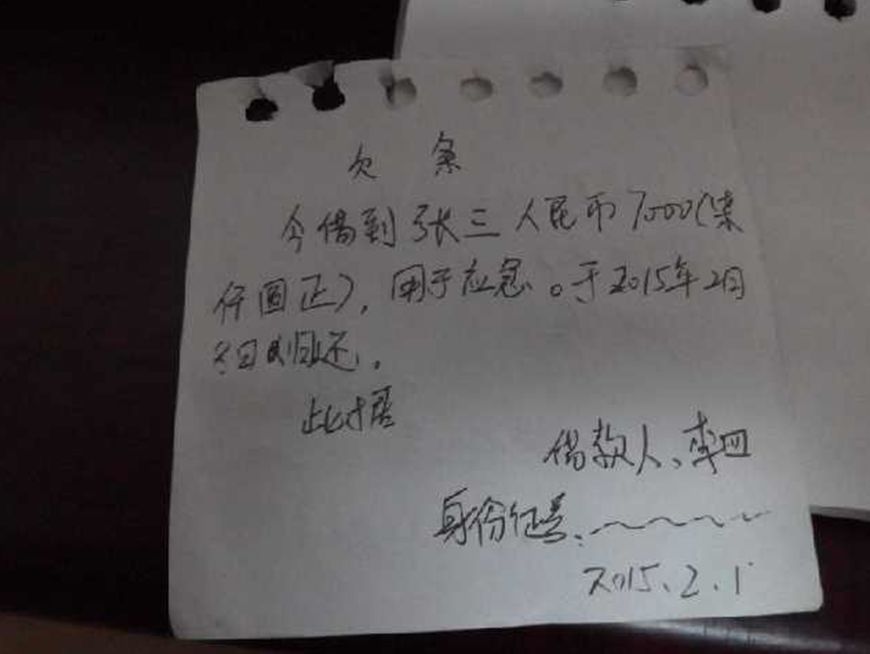 欠 条
今借到张三人民币7000(柒
仟圆正),用于应急。于2015年2月
日归还。
此据
借款人、李四
身份证号、
2015.2.1